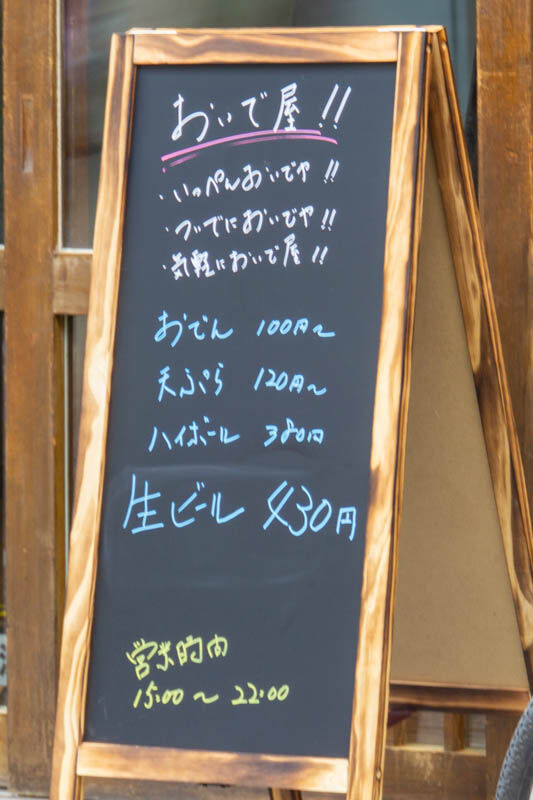 おいで屋!!
・いっぺんおいでや!!
・ついでにおいでや!!
・気軽においで屋!!
おでん 100円～
天ぷら 120円～
ハイボール 380円
生ビール 430円
営業時内
15:00～22:00